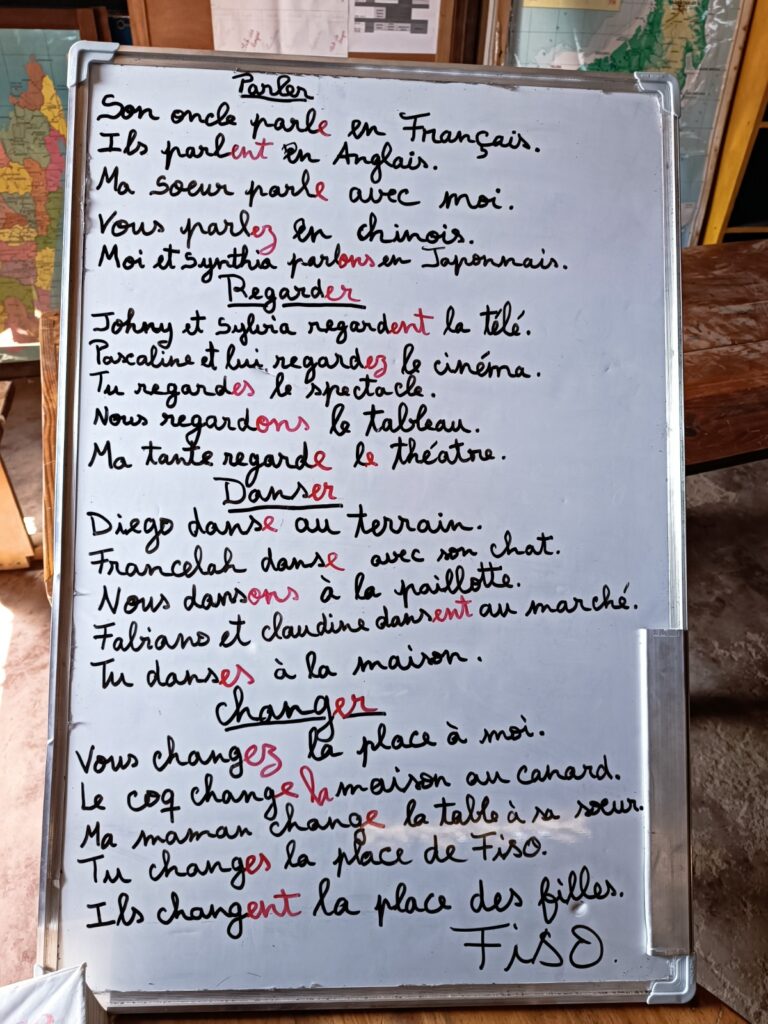 Parler
Son oncle parle en Français.
Ils parlent en Anglais.
Ma Soeur parle avec moi.
Vous parlez en chinois.
Moi et Synthia parlons en Japonnais.
Regarder
Johny et Sylvia regardent la télé.
Pascaline et lui regardez le cinéma.
Tu regardes le spectacle.
Nous regardons le tableau.
Ma tante regarde le théatre.
Danser
Diego danse au terrain.
Francelah danse avec son chat.
Nous dansons à la paillotte.
Fabiano et claudine dansent au marché.
Tu danses à la maison.
changer
Vous changez la place à moi.
Le coq change la maison au canard.
Ma maman change la table à sa soeur.
Tu changes la place de Fiso.
Ils changent la place des filles.
FiSO.